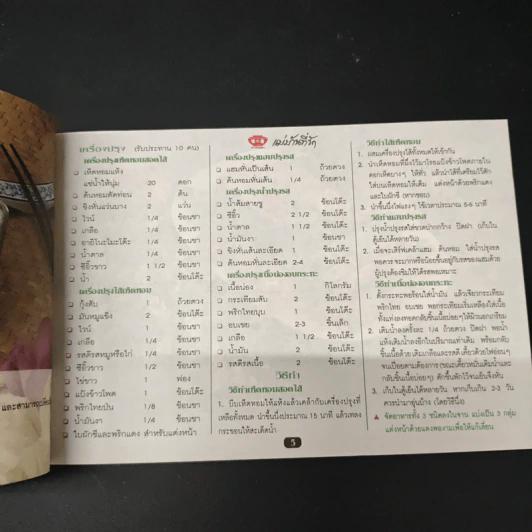 เครื่องปรุง (รับประทาน 10 คน)
เครื่องปรุงเห็ดหอมสอดไส้
เห็ดหอมแห้ง
แช่น้ำให้นุ่ม 20 ดอก
ต้นหอมตัดท่อน 2 ต้น
ขิงหั่นแว่นบาง 2 แว่น
ไวน์ 1/4 ช้อนชา
เกลือ 1/4 ช้อนชา
อายิโนะโมะโต๊ะ 1/4 ช้อนชา
น้ำตาล 1/4 ช้อนชา
ซีอิ๊วขาว 1 1/2 ช้อนโต๊ะ
น้ำ 2 ช้อนโต๊ะ
เครื่องปรุงไส้เห็ดหอม
กุ้งสับ 1 ถ้วยตวง
มันหมูแข็ง 2 ช้อนโต๊ะ
ไวน์ 1 ช้อนชา
เกลือ 1/4 ช้อนชา
รสดีรสหมูหรือไก่ 1/4 ช้อนชา
ซีอิ๊วขาว 1/2 ช้อนชา
ไข่ขาว 1 ฟอง
แป้งข้าวโพด 1 ช้อนโต๊ะ
พริกไทยป่น 1/8 ช้อนชา
น้ำมันงา 1/4 ช้อนชา
ใบผักชีและพริกแดง สำหรับแต่งหน้า
แม่บ้านที่รัก
เครื่องปรุงแฮมปรุงรส
แฮมหั่นเป็นเส้น 1 ถ้วยตวง
ต้นหอมหั่นเส้น 1/4 ถ้วยตวง
เครื่องปรุงน้ำปรุงรส
น้ำส้มสายชู 2 ช้อนโต๊ะ
ซีอิ๊ว 2 1/2 ช้อนโต๊ะ
น้ำตาล 1 1/2 ช้อนโต๊ะ
น้ำมันงา 1 ช้อนชา
ขิงหั่นเส้นละเอียด 1 ช้อนโต๊ะ
ต้นหอมหั่นละเอียด 2-4 ช้อนโต๊ะ
เครื่องปรุงเนื้อน่องอบกระทะ
เนื้อน่อง 1 กิโลกรัม
กระเทียมสับ 2 ช้อนโต๊ะ
พริกไทยบุบ 1 ช้อนโต๊ะ
อบเชย 2-3 ชิ้นเล็ก
เกลือ 1 1/2 ช้อนโต๊ะ
น้ำมัน 2 ช้อนโต๊ะ
รสดีรสเนื้อ 2 ช้อนโต๊ะ
วิธีทำ
วิธีทำเห็ดหอมสอดไส้
1. บีบเห็ดหอมให้แห้งแล้วคล้ากับเครื่องปรุงที่
เหลือทั้งหมด นำขึ้นนึ่งประมาณ 15 นาที แล้วเทลง
กระชอนให้สะเด็ดน้ำ
วิธีทำไส้เห็ดหอม
1. ผสมเครื่องปรุงไส้ทั้งหมดให้เข้ากัน
2. นำเห็ดหอมที่นึ่งไว้มาโรยแป้งข้าวโพดภายใน
ดอกเห็ดบางๆ ให้ทั่ว แล้วนำไส้ที่เตรียมไว้ตัก
ใส่บนเห็ดหอมให้เต็ม แต่งหน้าด้วยพริกแดง
และใบผักชี (หากชอบ)
3. นำขึ้นนึ่งไฟแรงๆ ใช้เวลาประมาณ 5-6 นาที
วิธีทำแฮมปรุงรส
1. ปรุงน้ำปรุงรสใส่ขวดปากกว้าง ปิดฝา (เก็บใน
ตู้เย็นได้หลายวัน)
2. เมื่อจะเสิร์ฟคลุ้าแฮม ต้นหอม ใส่น้ำปรุงรส
พอควรจะมากหรือน้อยขึ้นอยู่กับรสของแฮมด้วย
ผู้ปรุงต้องชิมให้ได้รสพอเหมาะ
วิธีทำเนื้อน่องอบกระทะ
1. ตั้งกระทะพอร้อนใส่น้ำมัน แล้วเจียวกระเทียม
พริกไทย อบเชย พอกระเทียมเริ่มเหลืองใส่เนื้อ
2. เติมน้ำลงครั้งละ 1/4 ถ้วยตวง ปิดฝา พอน้ำ
แห้งเติมน้ำลงอีกในปริมาณเท่าเดิม พร้อมกลับ
ชิ้นเนื้อด้วย เติมเกลือและรสดี เคี่ยวด้วยไฟอ่อนๆ
จนเปื่อยตามต้องการ (ขณะเคี่ยวหมั่นเติมน้ำและ
กลับชิ้นเนื้อบ่อยๆ) ตักขึ้นพักไว้จนเย็นจึงหั่น
3. เก็บในตู้เย็นได้หลายวัน หากเก็บเกิน 2-3 วัน
ควรนำมาอุ่นบ้าง (โดยวิธีนึ่ง)
จัดอาหารทั้ง 3 ชนิดลงในจาน แบ่งเป็น 3 กลุ่ม
แต่งหน้าด้วยแตงพองามเพื่อให้แก้เลี่ยน
5